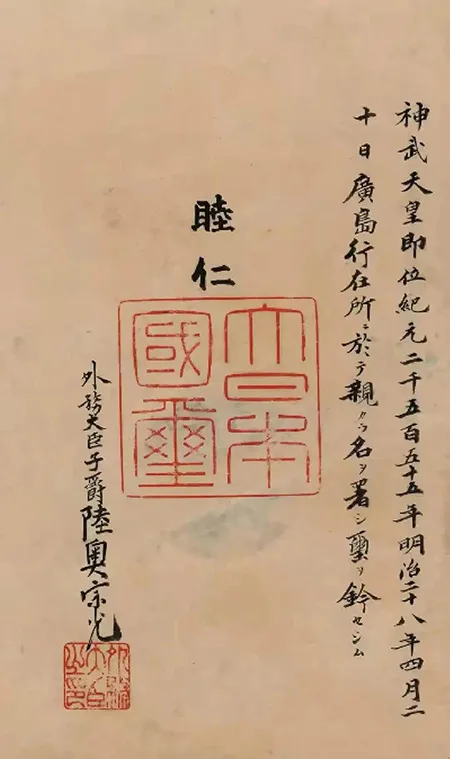 神武天皇即位紀元二千五百五十五年明治二十八年四月二
十日廣島行在所ニ於テ親ラ名ヲ署シ璽ヲ鈐セシム
睦仁
大日本國璽
外務大臣子爵陸奥宗光
外務大臣之印